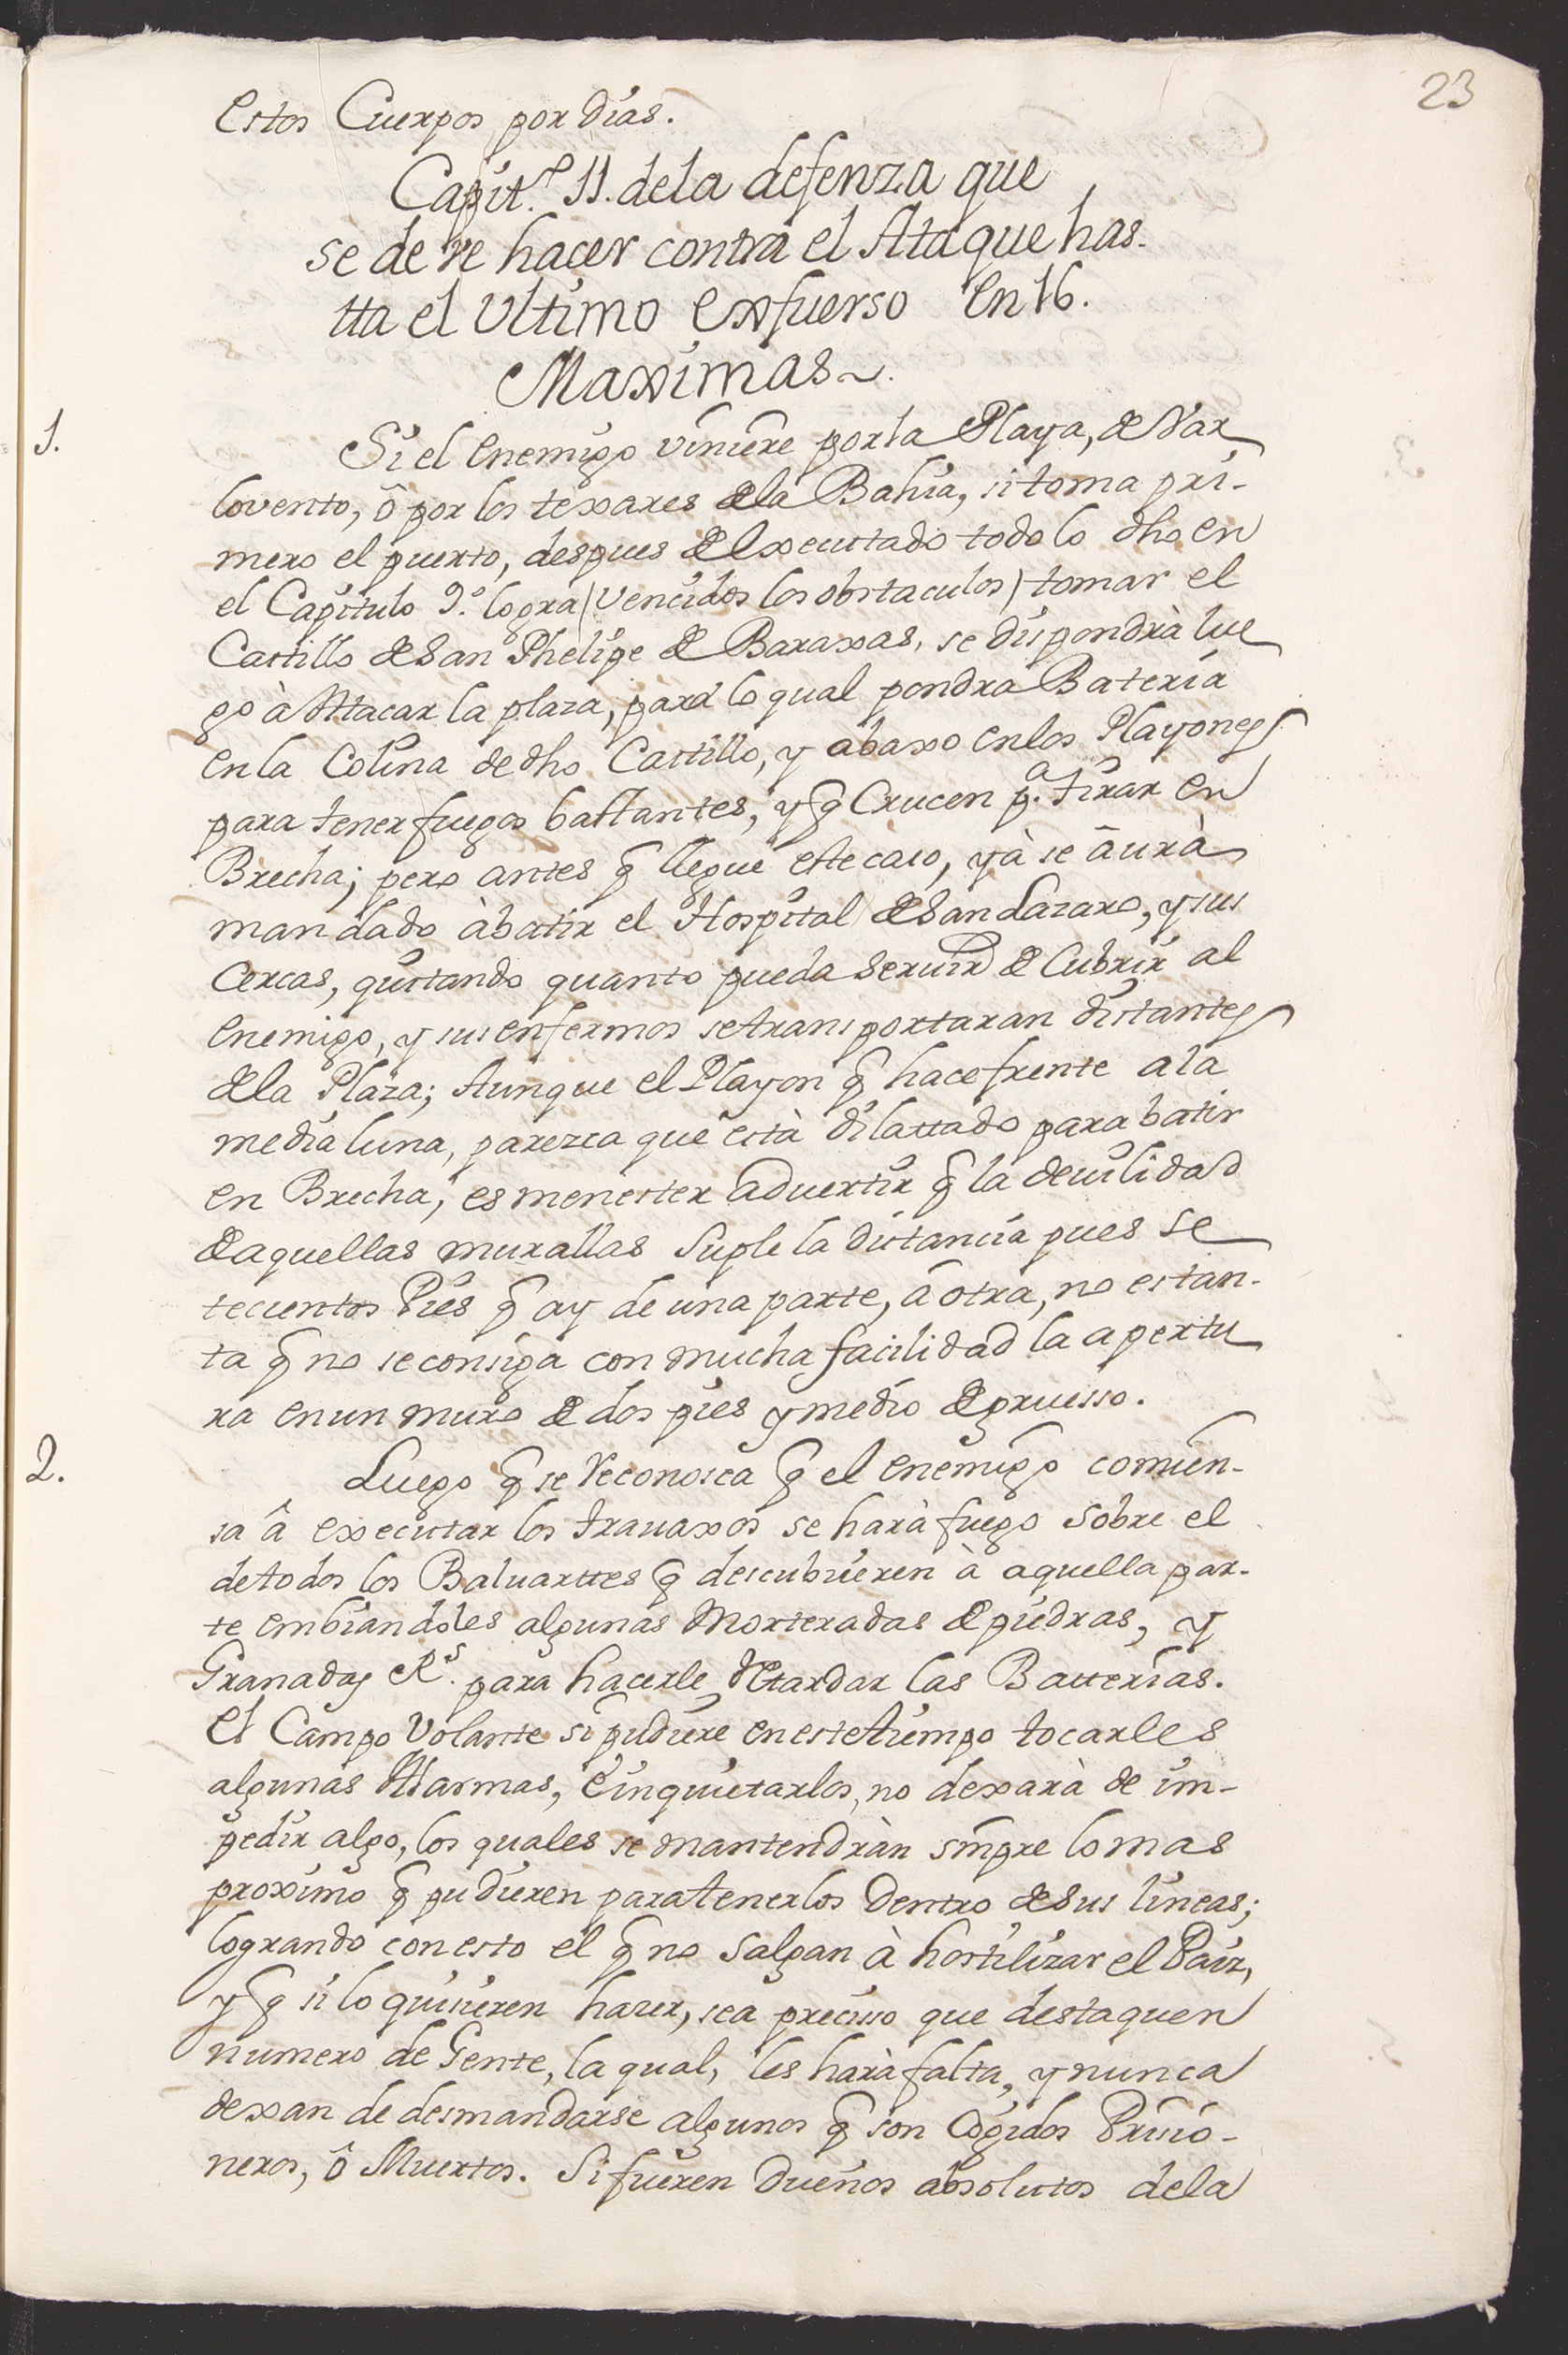 23
Estos Cuerpos por dias.
Capit.º 11. dela defenza que
se deve hacer contra el Ataque has-
tta el Ultimo exfuerso En 16.
Maximas~.
1.
Si el Enemigo viniere por la Playa, de Var
lovento, ô por los texares dela Bahia, si toma pri-
mero el puerto, despues de Executado todo lo dho en
el Capitulo 9.º logra (vencidos los obstaculos) tomar el
Castillo de San Phelipe de Baraxas, se dispondrà lue
go à Attacar la plaza, para lo qual pondra Bateria
en la Colina de dho Castillo, y abaxo enlos Playones
para tener fuegos bastantes, y q̃ Crucen p.ª tirar en
Brecha; pero antes q̃ llegue este caso, yà se âurà
mandado àbatir el Hospital de San Lazaro, y sus
Cercas, quitando quanto pueda servir de Cubrir al
Enemigo, y sus enfermos se transportaran distantes
dela Plaza; Aunque el Playon q̃ hace frente a la
media luna, parezca que està dilattado para batir
en Brecha, es menester advertir q̃ la devilidad
de aquellas murallas suple la distancia pues se
tecientos Pies q̃ ay de una parte, â otra, no es tan-
ta q̃ no se consiga con mucha facilidad la apertu
ra en un muro de dos pies y medio de gruesso.
2.
Luego q̃ se Reconosca q̃ el enemigo comien-
sa â executar los travaxos se harà fuego sobre el
de todos los Baluarttes q̃ descubrieren à aquella par-
te embiandoles algunas Morteradas de piedras, y
Granadas R.s para hacerle Retardar las Batterias.
El Campo Volante si pudiere en este tiempo tocarles
algunas Alarmas, è inquietarlos, no dexarà de im-
pedir algo, los quales se mantendràn smpre lo mas
proximo q̃ pudieren para tenerlos dentro de sus lineas;
logrando con esto el q̃ no salgan à hostilizar el Pais,
y q̃ si lo quisieren hazer, sea precisso que destaquen
numero de Gente, la qual, les harà falta, y nunca
dexan de desmandarse algunos q̃ son Cogidos Prisio-
neros, ô Muertos. Si fueren dueños absolutos de la